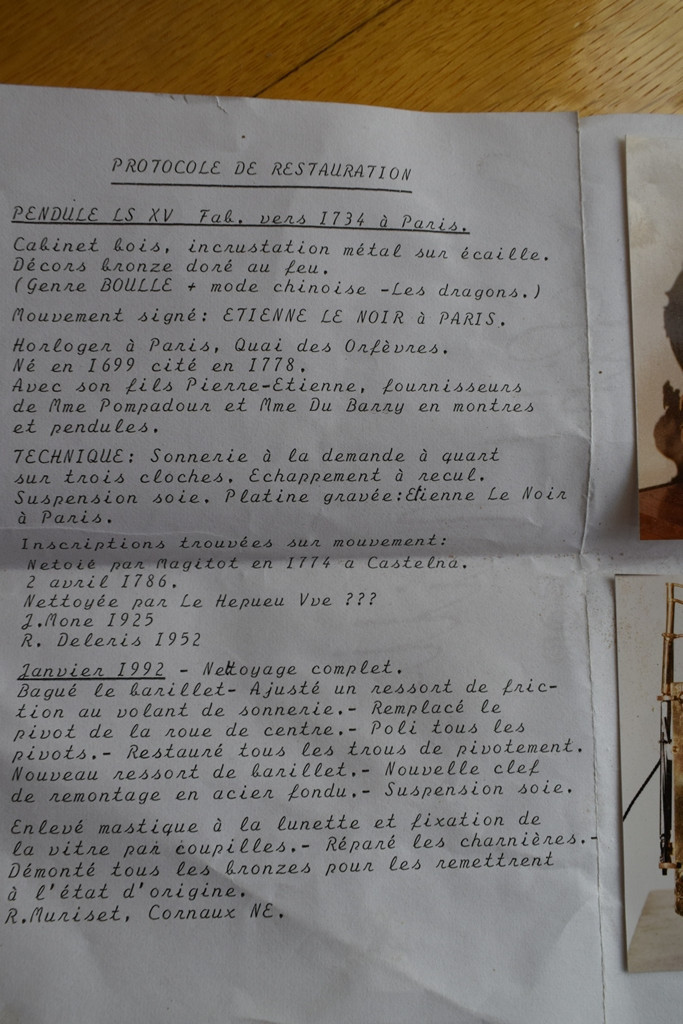 PROTOCOLE DE RESTAURATION
PENDULE LS XV Fab. vers I734 à Paris.
Cabinet bois, incrustation métal sur écaille.
Décors bronze doré au feu.
(Genre BOULLE + mode chinoise -Les dragons.)
Mouvement signé: ETIENNE LE NOIR à PARIS.
Horloger à Paris, Quai des Orfèvres.
Né en I699 cité en I778.
Avec son fils Pierre-Etienne, fournisseurs
de Mme Pompadour et Mme Du Barry en montres
et pendules.
TECHNIQUE: Sonnerie à la demande à quart
sur trois cloches. Echappement à recul.
Suspension soie. Platine gravée:Etienne Le Noir
à Paris.
Inscriptions trouvées sur mouvement:
Netoié par Magitot en I774 a Castelna.
2 avril I786.
Nettoyée par Le Hepueu Vve ???
J.Mone I925
R. Deleris I952
Janvier I992 - Nettoyage complet.
Bagué le barillet- Ajusté un ressort de fric-
tion au volant de sonnerie.- Remplacé le
pivot de la roue de centre.- Poli tous les
pivots.- Restauré tous les trous de pivotement.
Nouveau ressort de barillet.- Nouvelle clef
de remontage en acier fondu.- Suspension soie.
Enlevé mastique à la lunette et fixation de
la vitre par coupilles.- Réparé les charnières.-
Démonté tous les bronzes pour les remettrent
à l'état d'origine.
R.Muriset, Cornaux NE.